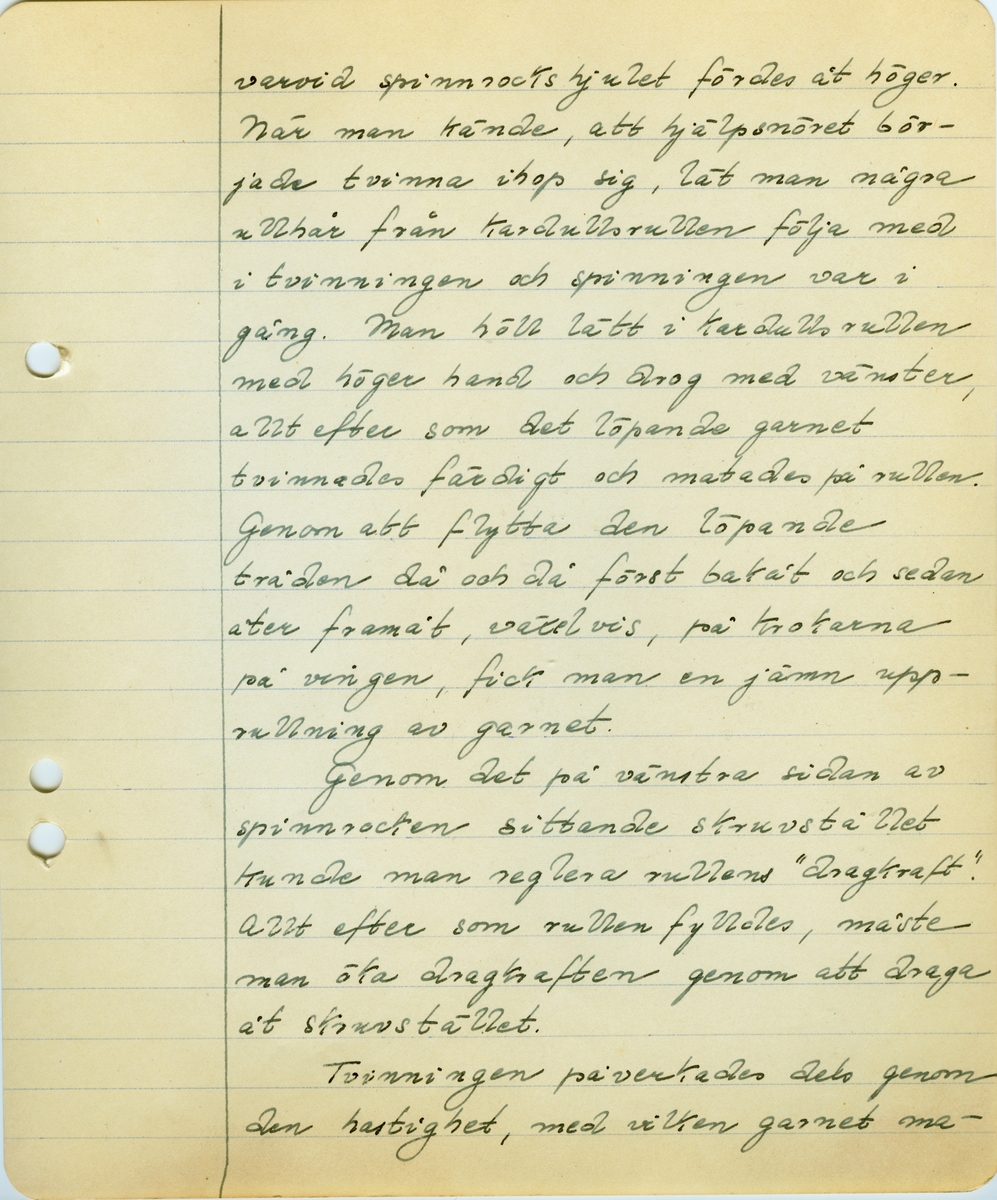 varvid spinnrockshjulet fördes åt höger.
När man kände, att hjälpsnöret bör-
jade tvinna ihop sig, lät man några
ullhår från kardullsrullen följa med
i tvinningen och spinningen var i
gång. Man höll lätt i kardullsrullen
med höger hand och drog med vänster,
allt efter som det löpande garnet
tvinnades färdigt och matades på rullen.
Genom att flytta den löpande
tråden då och då först bakåt och sedan
åter framåt, växelvis, på krokarna
på vingen, fick man en jämn upp-
rullning av garnet.
Genom det på vänstra sidan av
spinnrocken sittande skruvstället
kunde man reglera rullens "dragkraft".
Allt efter som rullen fylldes, måste
man öka dragkraften genom att draga
åt skruvstället.
Tvinningen påverkades dels genom
den hastighet, med vilken garnet ma-